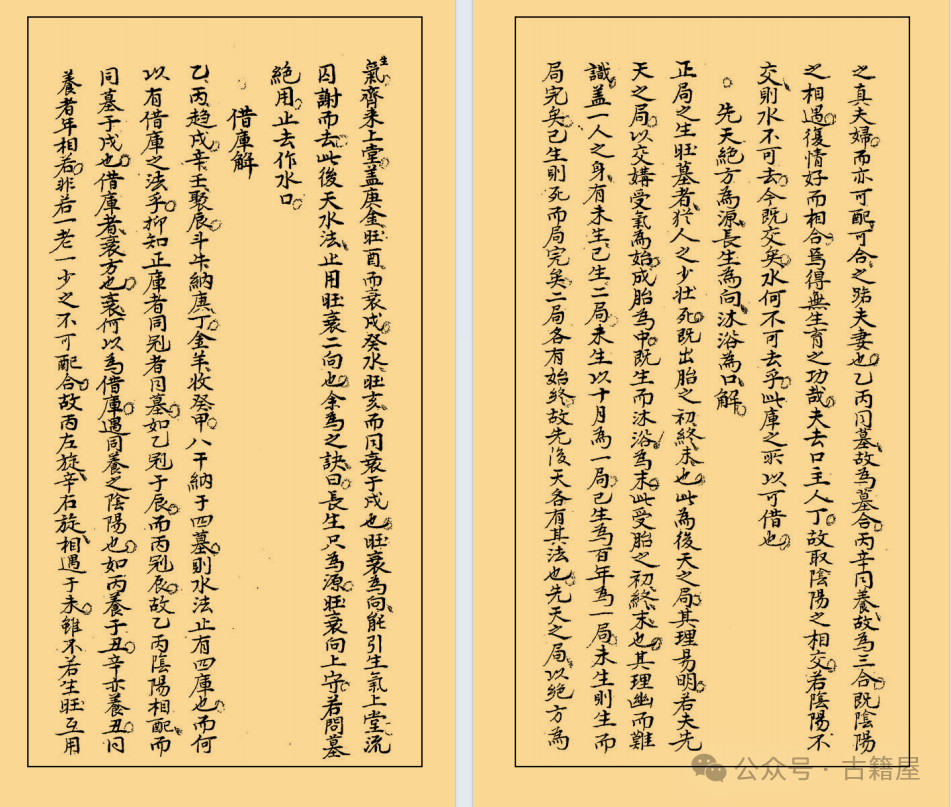 生氣齊来上堂蓋庚金旺酉而衰戌癸水旺亥而同衰于戌也旺衰為向能引生氣上堂流
囚謝而去此後天水法止用旺衰二向也余為之訣曰長生只為源旺衰向上守若問墓
絕用止去作水口
借庫解
乙丙趋戌辛壬聚辰斗牛納庚丁金羊收癸甲八干納于四墓則水法止有四庫也而何
以有借庫之法乎抑知正庫者同冠者同墓如乙冠于辰而丙冠辰故乙丙陰陽相配而
同墓于戌也借庫者衰方也衰何以為借庫遇同養之陰陽也如丙養于丑辛亦養丑同
養者年相若非若一老一少之不可配合故丙左旋辛右旋相遇于未雖不若生旺互用
之真夫婦而亦可配可合之夫妻也乙丙同墓故為墓合丙辛同養故為三合既陰陽
之相遇復情好而相合焉得無生育之功哉夫去口主人丁故取陰陽之相交若陰陽不
交則水不可去今既交矣水何不可去乎此庫之所以可借也
先天絕方為源長生為向沐浴為口解
正局之生旺墓者犹人之少壮死既出胎之初終末也此為後天之局其理易明若夫先
天之局以交媾受氣為始成胎為中既生而沐浴為末此受胎之初終末也其理幽而難
識蓋一人之身有未生已生二局未生以十月為一局已生為百年為一局未生則生而
局完矣已生則死而局完矣二局各有始終故先後天各有其法也先天之局以絕方為
公众号·古籍屋